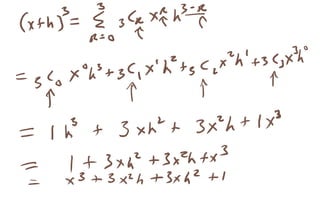 (x+h)³ = Σ_{R=0}^{3} ₃C_R x^R h^{3-R}
= ₃C₀ x⁰h³ + ₃C₁ x¹h² + ₃C₂ x²h¹ + ₃C₃ x³h⁰
↑ ↑ ↑ ↑
= 1h³ + 3xh² + 3x²h + 1x³
= 1 + 3xh² + 3x²h + x³
= x³ + 3x²h + 3xh² + 1